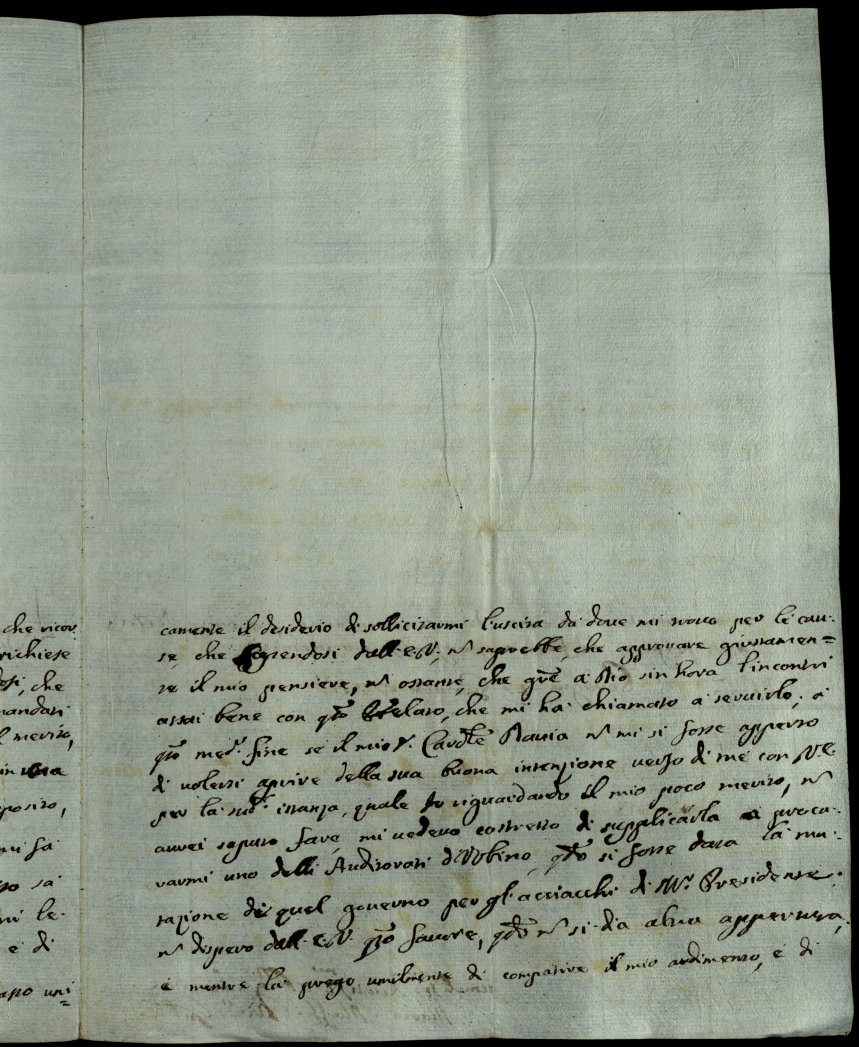 che ricor
richiese
dosi, che
mandati
l merito,
in una
posito,
mi fa
to sa
mi le
e di
uni=
camente il desiderio di sollicitarmi l'uscita da dove mi trovo per le cau:
se, che dall'E.V., nõ saprebbe, che approvare giustamen=
te il mio pensiere, nõ ostante, che a Dio sin hora l'incontri
assai bene con q̃to Prelato, che mi ha chiamato a servirlo; a
q̃to med.º fine se il mio S.r Card.le nõ mi si fosse apperto
di volersi aprire della sua buona intenzione verso di me con V.E.
per la sud.ª istanza, quale Io riguardando il mio poco merito, nõ
avrei saputo fare, mi vedevo costretto di supplicarla a procu:
rarmi uno delli Auditorati d'Urbino, q̃do si fosse data la mu:
tazione di quel governo per gl'acciacchi di M.r Presidente.
nõ dispero dall'E.V. q̃to favore, q̃do nõ si dia altra appertura,
e mentre la prego umilmente di compatire il mio ardimento, e di